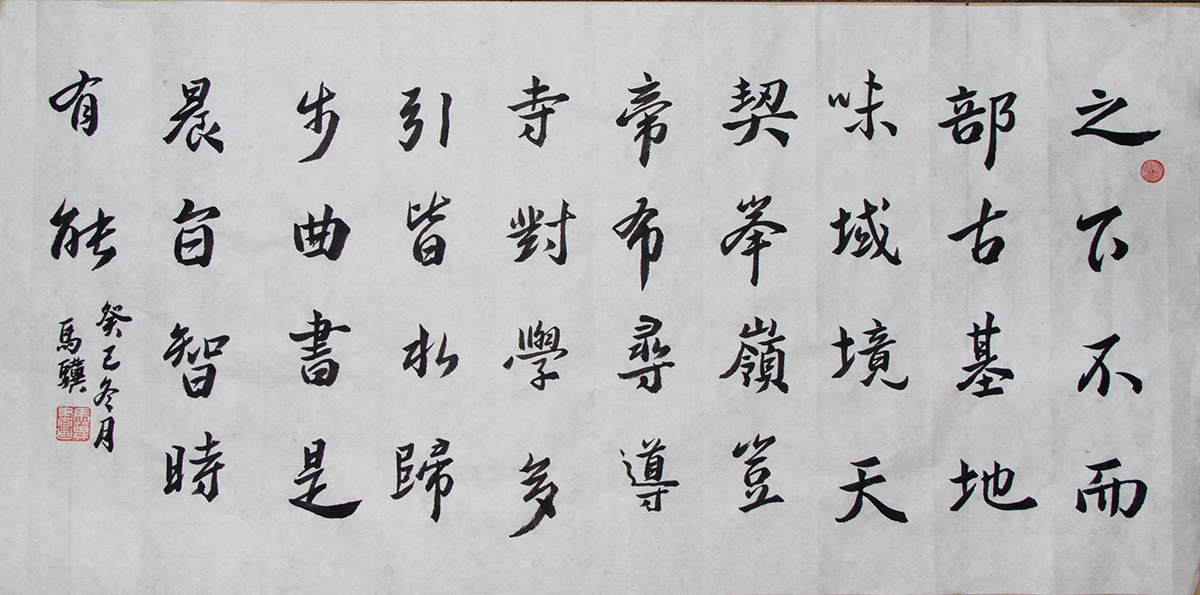 之下不而
部古基地
味域境天
契峯嶺豈
帝布尋導
寺對學多
引皆於歸
步曲書是
晨自智時
有能
癸巳冬月
馬驥